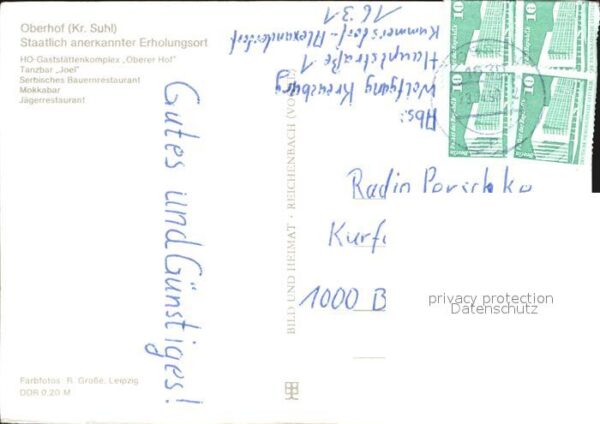 Oberhof (Kr. Suhl)
Staatlich anerkannter Erholungsort
HO-Gaststättenkomplex „Oberer Hof"
Tanzbar „Joel"
Serbisches Bauernrestaurant
Mokkabar
Jägerrestaurant
Gutes und Günstiges!
Farbfotos: R. Große, Leipzig
DDR 0,20 M
BILD UND HEIMAT · REICHENBACH
Abs:
Wolfgang Kreuzburg
Hauptstraße 1
Kummersdorf-Alexanderdorf
1631
10
10
10
10
Radio Porschke
Kurf
1000 B
privacy protection
Datenschutz